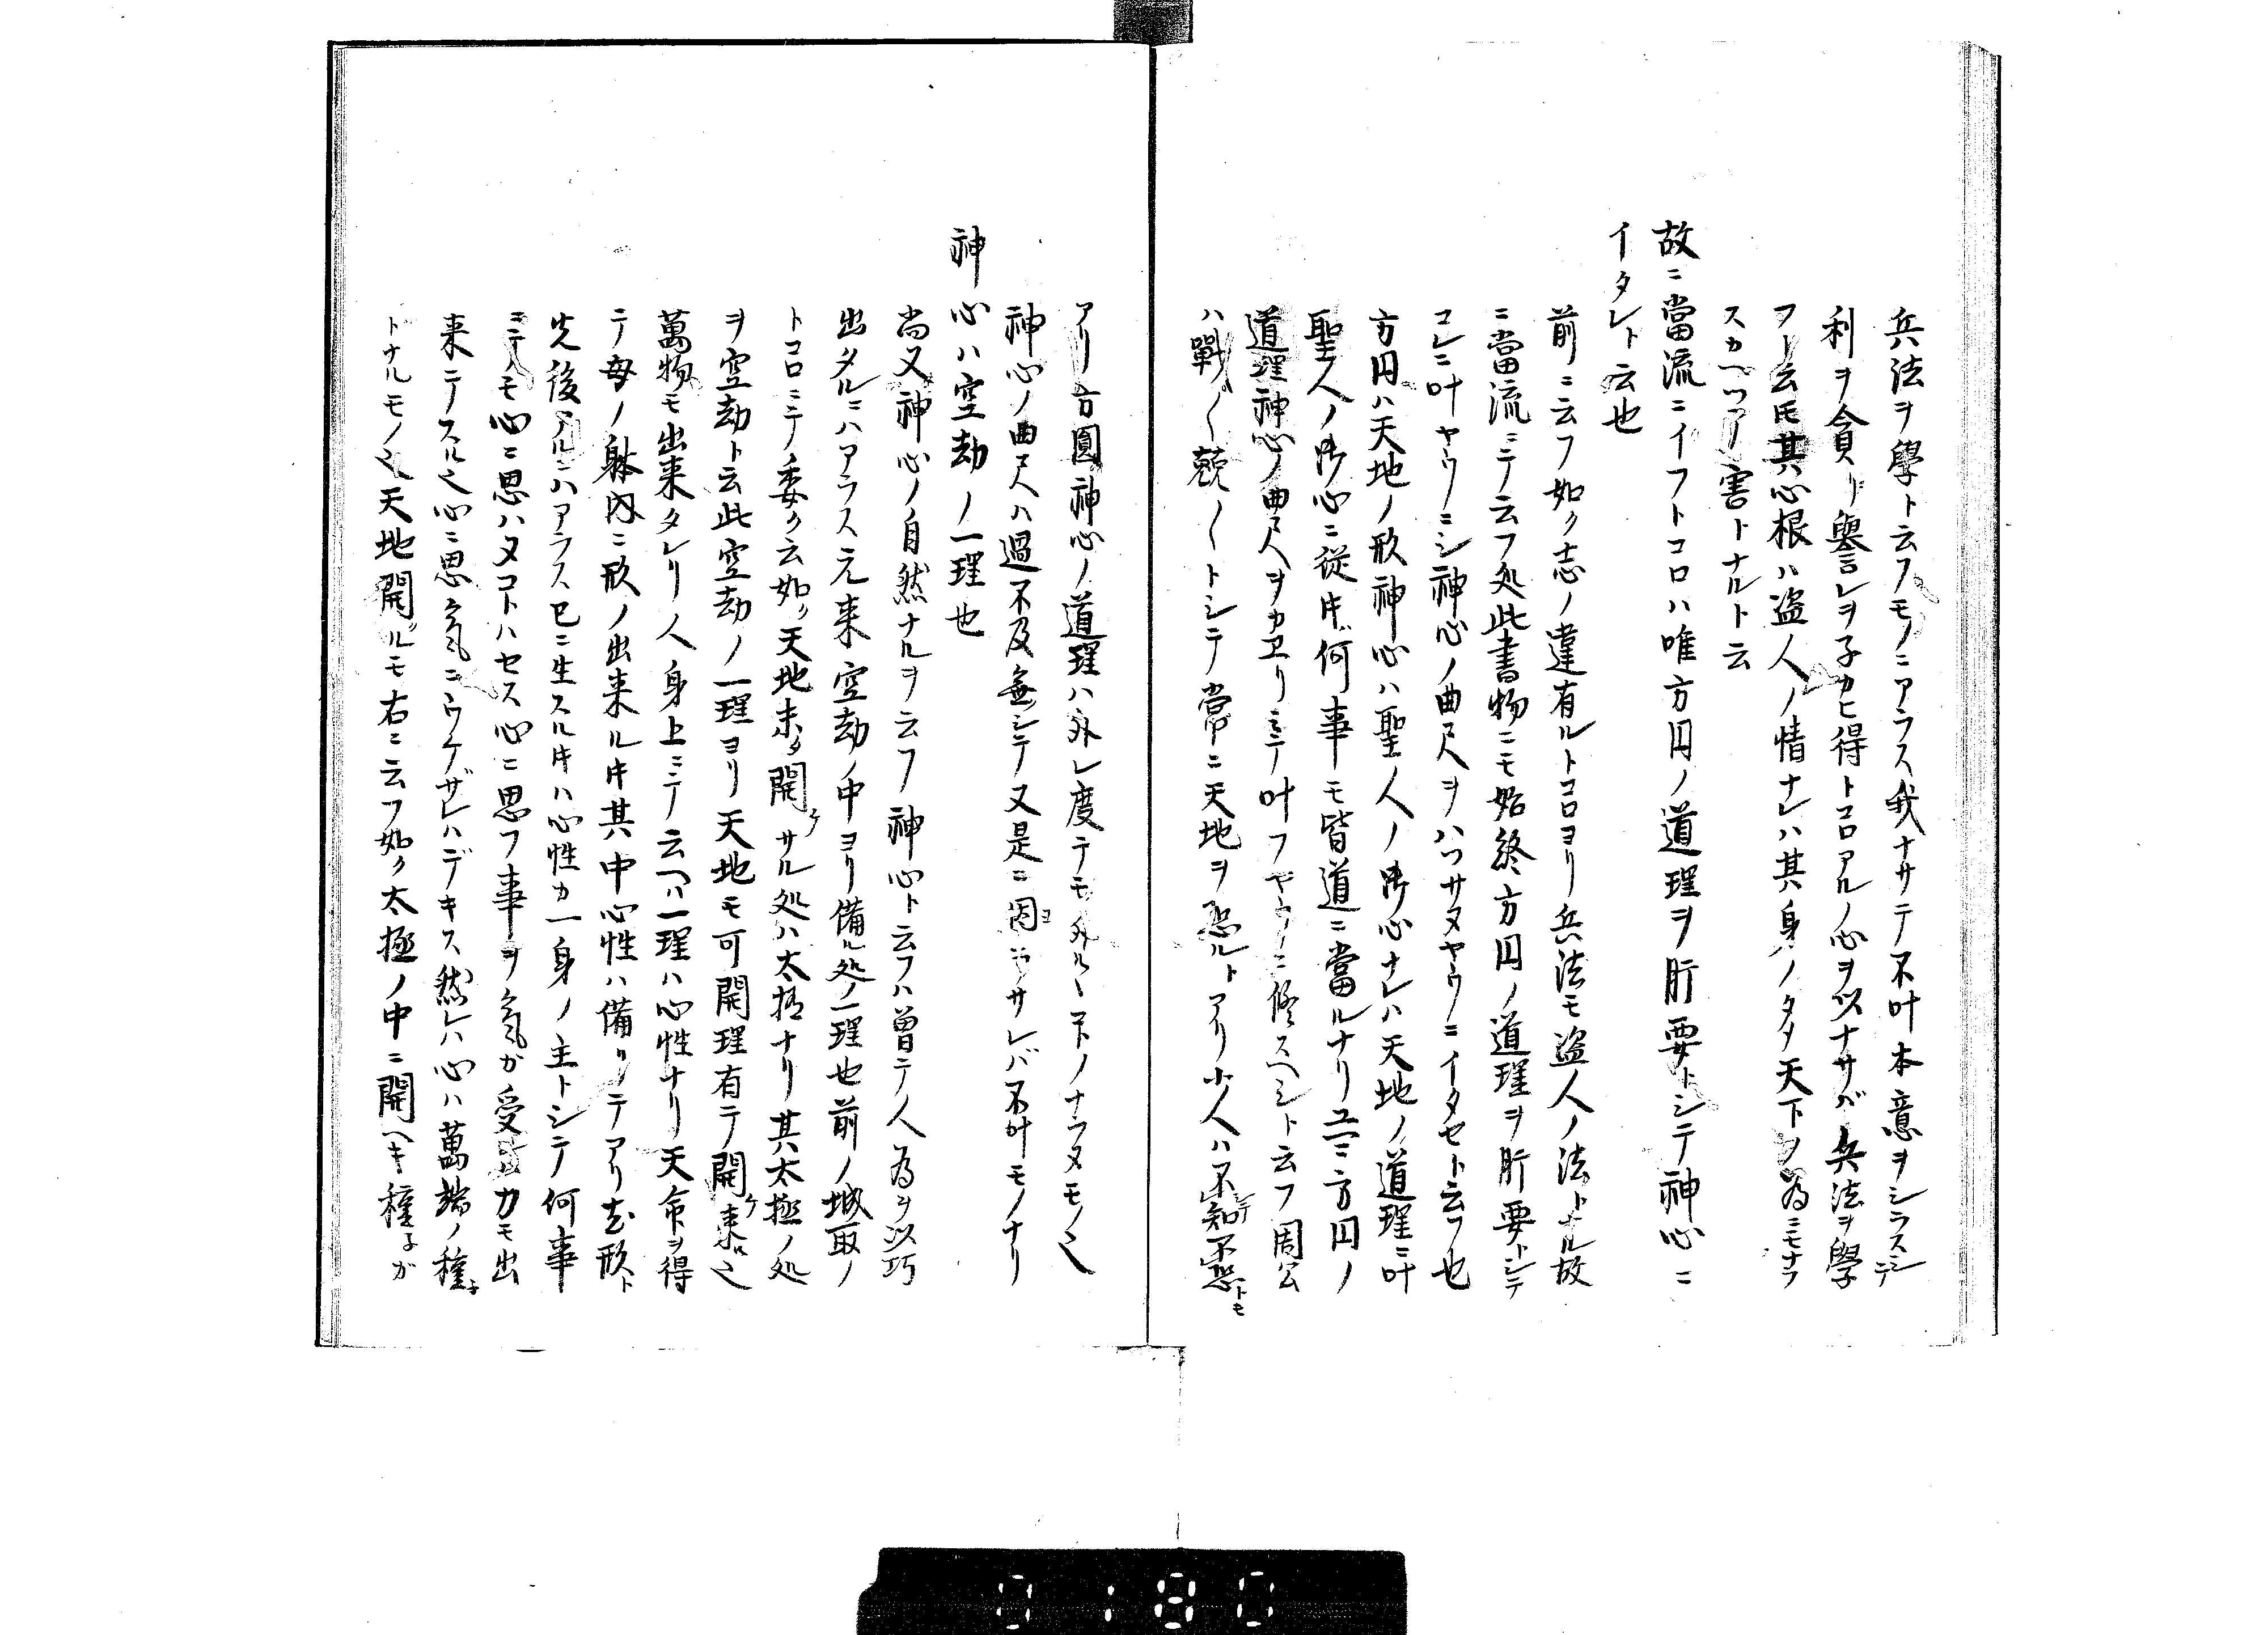 兵法ヲ學ト云フモノニアラス我ナサテ不叶本意ヲシラスシテ
利ヲ貪リ譽レヲ子カヒ得トコロアルノ心ヲ以ナサバ兵法ヲ學
フト云𪜈其心根ハ盗人ノ情ナレハ其身ノタメ天下ノ為ニモナラ
スカヘツテ害トナルト云
故ニ當流ニイフトコロハ唯方円ノ道理ヲ肝要トシテ神心ニ
イタレト云也
前ニ云フ如ク志ノ違有ルトコロヨリ兵法モ盗人ノ法トナル故
ニ當流ニテ云フ処此書物ニモ始終方円ノ道理ヲ肝要トシテ
コレニ叶ヤウニシ神心ノ曲尺ヲハツサヌヤウニイタセト云フ也
方円ハ天地ノ形神心ハ聖人ノ御心ナレハ天地ノ道理ニ叶
聖人ノ御心ニ従ハ何事モ皆道ニ當ルナリ方円ノ
道理神心ノ曲尺ヲカヱリミテ叶フヤウニ修スヘシト云フ周公
ハ戰〱兢〱トシテ常ニ天地ヲ恐ルトアリ小人ハ不知シテ不恐トモ
アリ方圓神心ノ道理ハ外レ度テモ外ルヽ下ノナラヌモノ也
神心ノ曲尺ハ過不及無シテ又是ニ因ラサレバ不叶モノナリ
神心ハ空劫ノ一理也
尚又神心ノ自然ナルヲ云フ神心ト云フハ曽テ人為ヲ以巧
出タルニハアラス元来空劫ノ中ヨリ備ル処ノ一理也前ノ城取ノ
トコロニテ委ク云如ク天地未タ開ケサル処ハ太極ナリ其太極ノ処
ヲ空劫ト云此空劫ノ一理ヨリ天地モ可開理有テ開ケ来ル也
萬物モ出来タレリ人身上ニテ云ヘハ一理ハ心性ナリ天命ヲ得
テ母ノ躰内ニ形ノ出来ル时其中心性ハ備リテアリ尤形ト
先後アルニハアラス已ニ生スル时ハ心性カ一身ノ主トシテ何事
ニテモ心ニ思ハヌコトハセス心ニ思フ事ヲ氣ガ受カモ出
来テスル也心ニ思氣ニウケザレハデキス然レハ心ハ萬端ノ種子
トナルモノ也天地開クルモ右ニ云フ如ク太極ノ中ニ開ヘキ種子ガ